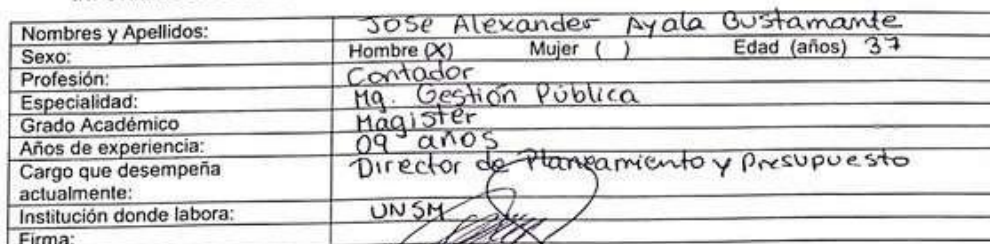 Nombres y Apellidos: Jose Alexander Ayala Bustamante
Sexo: Hombre (X) Mujer ( ) Edad (años) 37
Profesión: Contador
Especialidad: Mg. Gestión Pública
Grado Académico Magister
Años de experiencia: 09 años
Cargo que desempeña Director de Planeamiento y Presupuesto
actualmente:
Institución donde labora: UNSM
Firma: